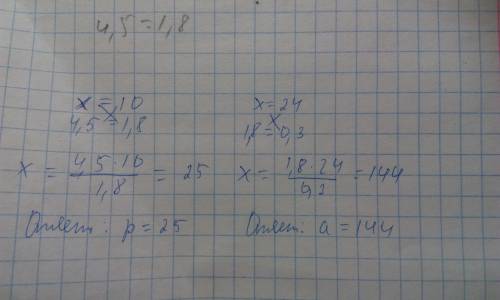 4,5 = 1,8
x = 10
4,5 = 1,8
x = 4,5 · 10 / 1,8 = 25
Ответ: p = 25
x = 24
1,8 = 0,3
x = 1,8 · 24 / 0,3 = 144
Ответ: a = 144